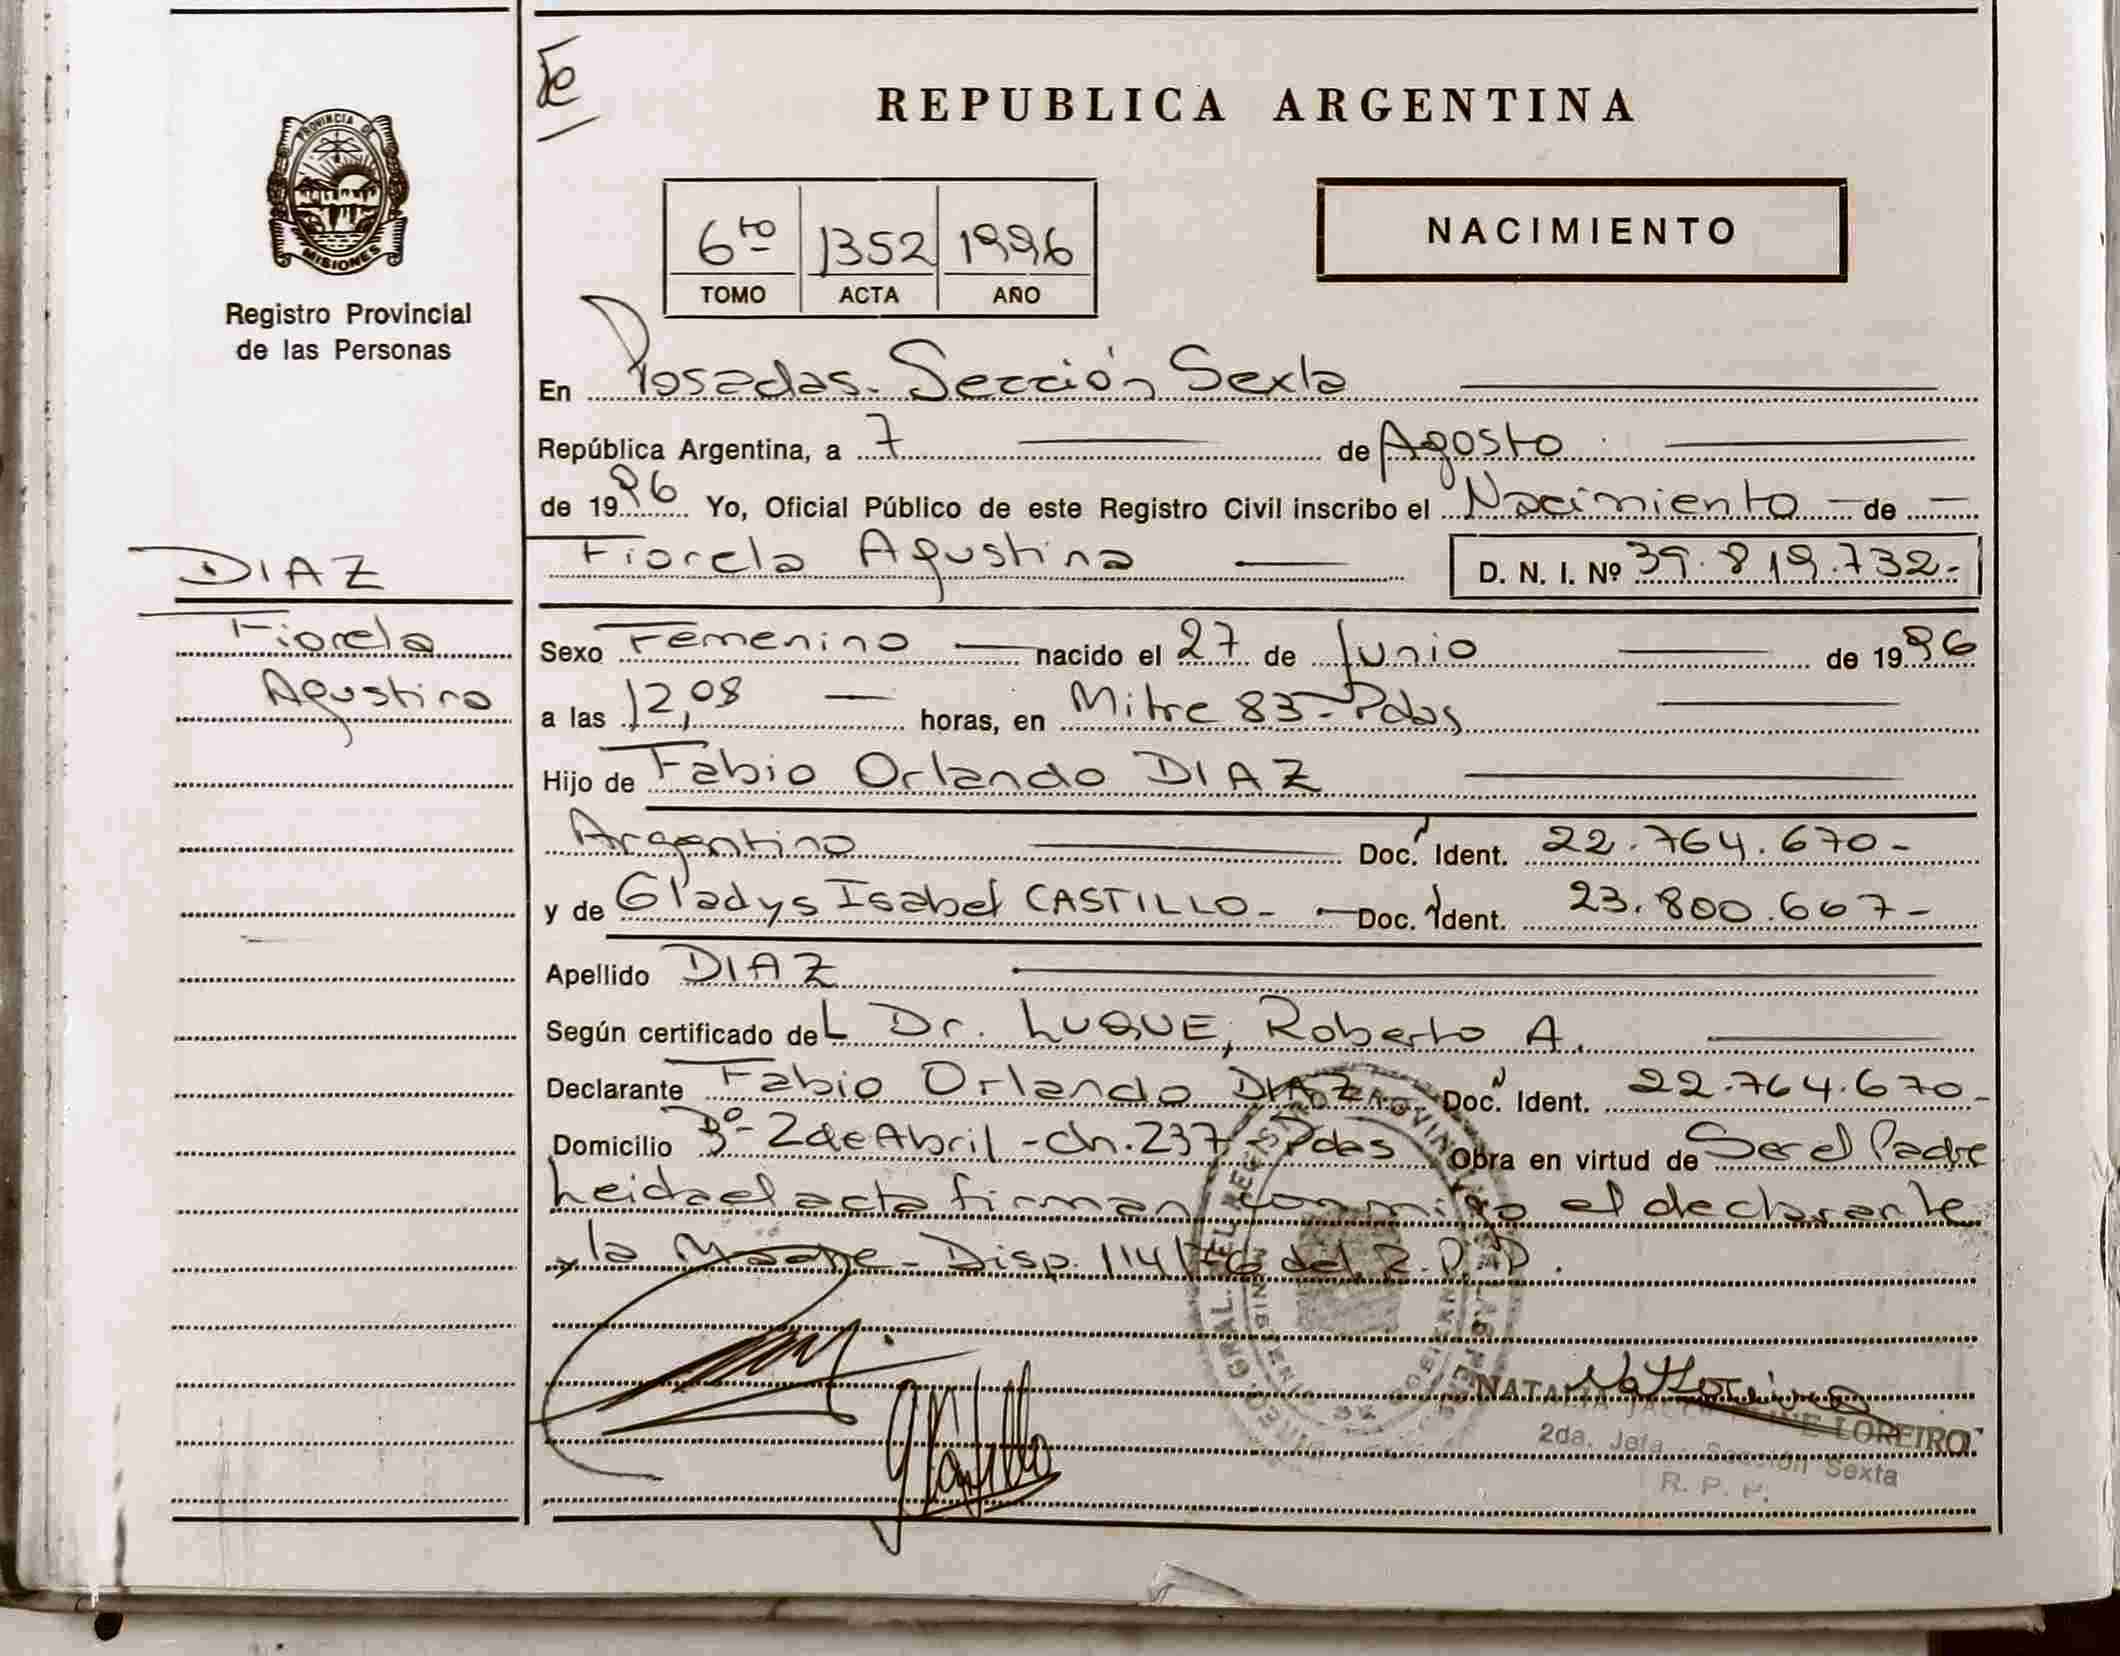 PROVINCIA DE
MISIONES
Registro Provincial
de las Personas
DIAZ
Fiorela
Agustina
REPUBLICA ARGENTINA
6to 1352 1996
TOMO ACTA AÑO
NACIMIENTO
En Posadas. Sección Sexta
República Argentina, a 7 de Agosto
de 1996 Yo, Oficial Público de este Registro Civil inscribo el Nacimiento de
Fiorela Agustina D. N. I. Nº 39.819.732.-
Sexo Femenino nacido el 27 de Junio de 1996
a las 12,08 horas, en Mitre 83-Pdas
Hijo de Fabio Orlando DIAZ
Argentino Doc. Ident. 22.764.670-
y de Gladys Isabel CASTILLO- Doc. Ident. 23.800.667-
Apellido DIAZ
Según certificado del Dr. LUQUE, Roberto A.
Declarante Fabio Orlando DIAZ Doc. Ident. 22.764.670-
Domicilio Bº- 2 de Abril - ch. 237 - Pdas Obra en virtud de Ser el Padre
Leida el acta firman conmigo el declarante
y la Madre - Disp. 114/76 del R.P.P.
LOREIRO
2da. Jefa - Sección Sexta
R. P. P.